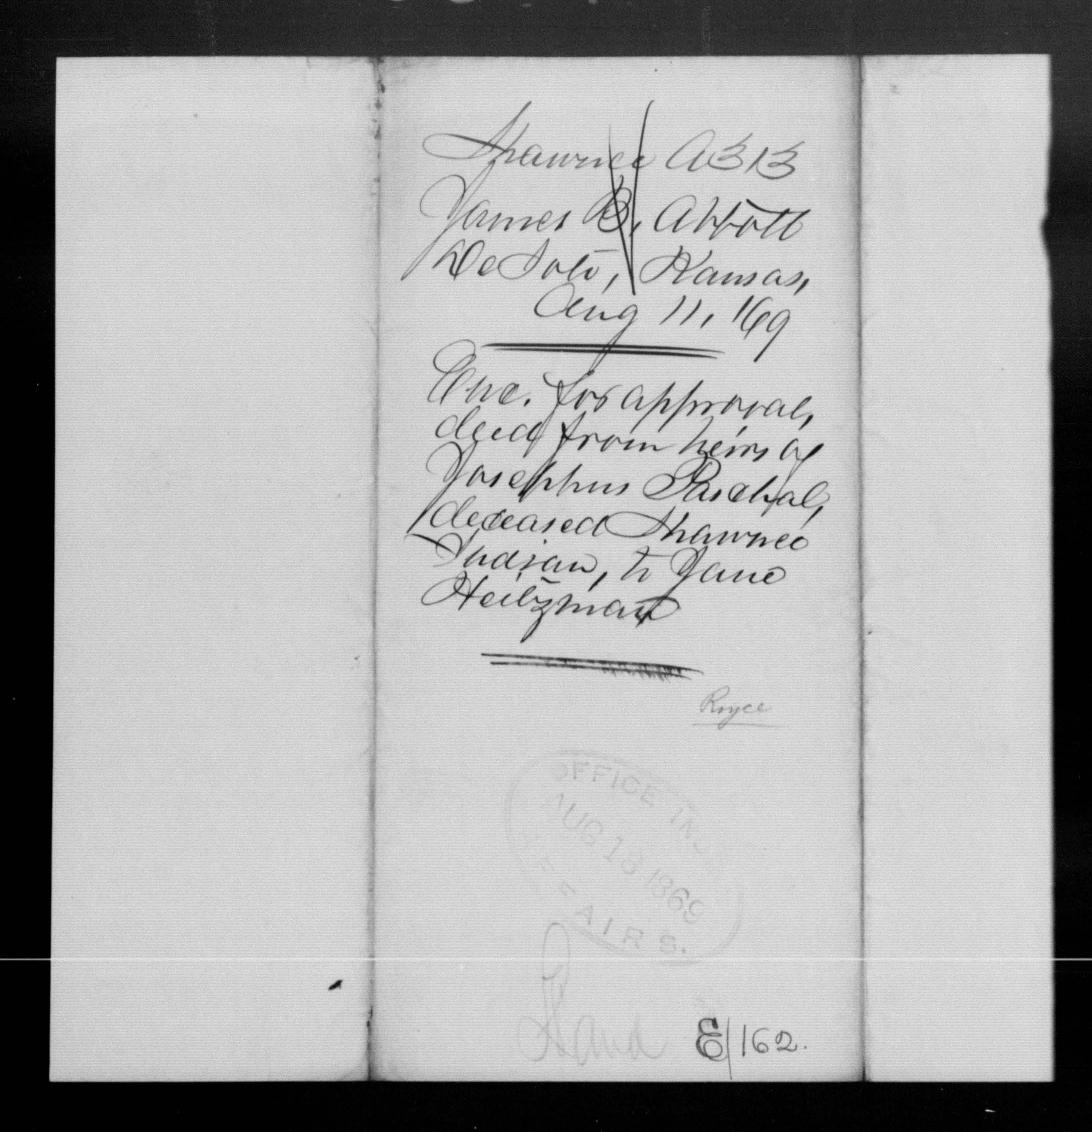 Shawnee A313
James B. Abbott
De Soto, Kansas,
Aug 11, '69
Enc. for approval,
deed from heirs of
Josephus Paschal,
deceased Shawnee
Indian, to Jane
Heitzman
Royce
OFFICE IN
AUG 13 1869
AFFAIRS.
Land
E/162.